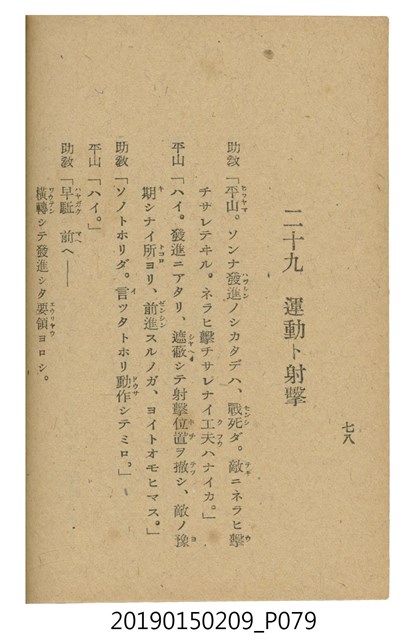 二十九　運動ト射擊
七八
助敎「平山。ソンナ發進ノシカタデハ、戰死ダ。敵ニネラヒ擊
チサレテヰル。ネラヒ擊チサレナイ工夫ハナイカ。」
平山「ハイ。發進ニアタリ、遮蔽シテ射擊位置ヲ撤シ、敵ノ豫
期シナイ所ヨリ、前進スルノガ、ヨイトオモヒマス。」
助敎「ソノトホリダ。言ツタトホリ動作シテミロ。」
平山「ハイ。」
助敎「早駈　前ヘ――
橫轉シテ發進シタ要領ヨロシ。
20190150209_P079